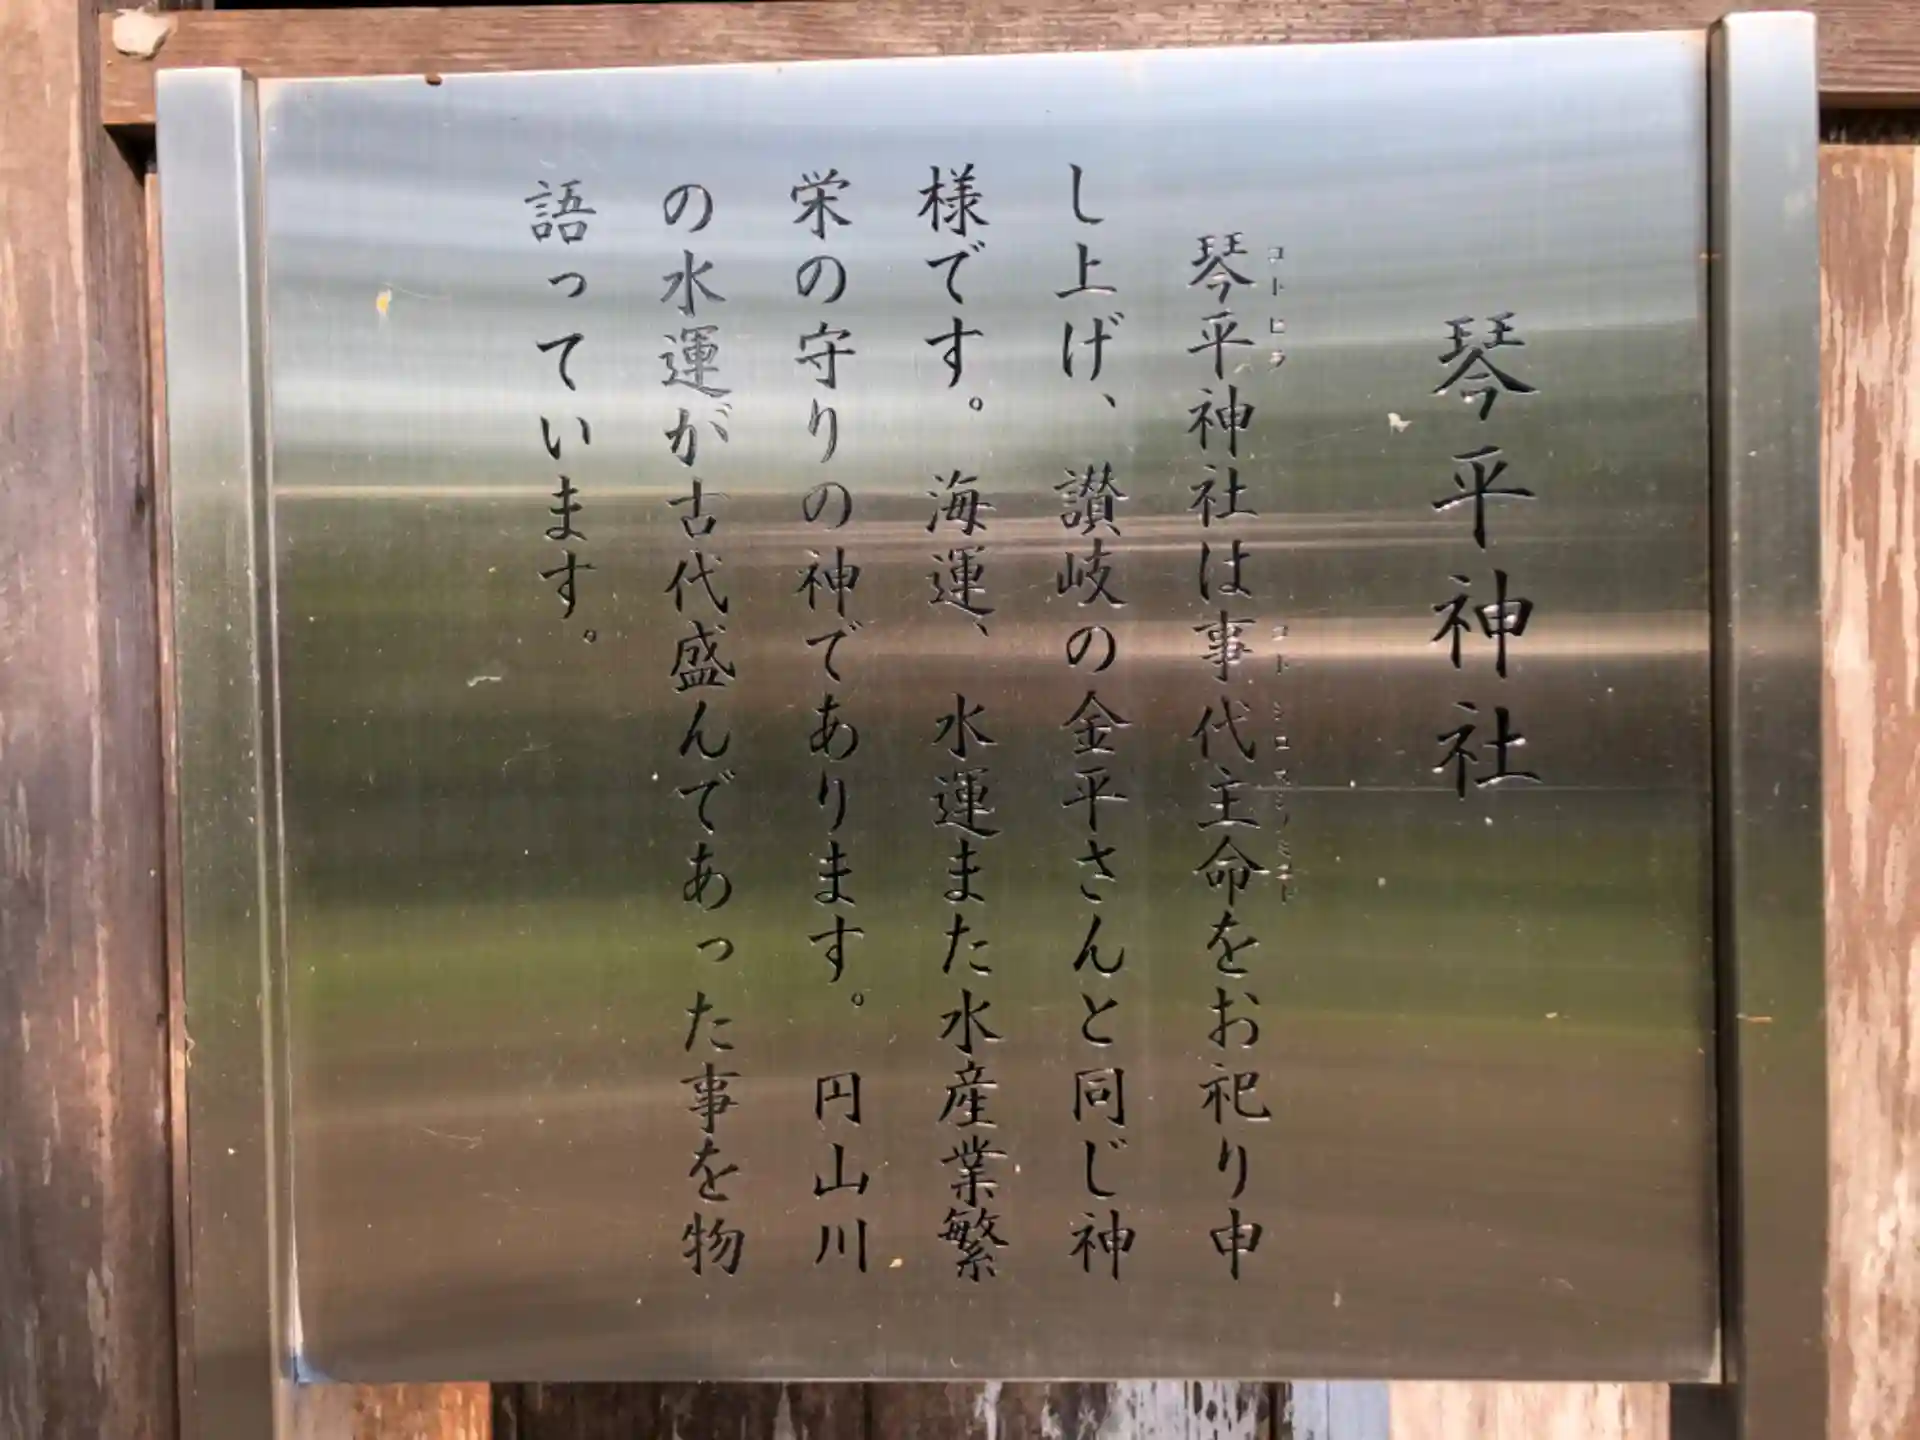 琴平神社
琴平神社は事代主命をお祀り申
コトヒラ
コトシロヌシノミコト
し上げ、讃岐の金平さんと同じ神
様です。海運、水運また水産業繁
栄の守りの神であります。円山川
の水運が古代盛んであった事を物
語っています。